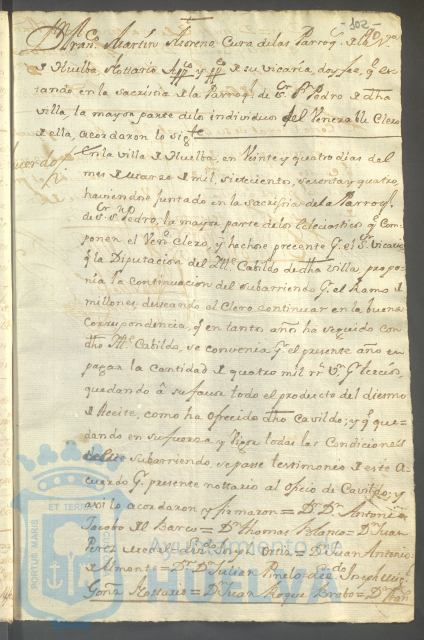 -102-
Dn. Fran.co Martin Moreno, Cura de las Parroq.s de la V.a
de Huelba, Nottario App.co y de su vicaría, doy fee, q.e es-
tando en la sacristia de la Parroq.l de S.or S.n Pedro de dha
villa, la mayor parte de los individuos del Venerable Clero
de ella, acordaron lo sig.te
Acuerdo
En la villa de Huelba, en Veinte y quatro dias del
mes de Marzo de mil, setecientos, sesenta y quatro,
haviendose juntado en la sacristia de la Parroq.l
de S.or S.n Pedro, la mayor parte de los Eclesiasticos q.e com-
ponen el Ven.e Clero, y hechose precente p.r el S.r Vicario
q.e la Diputacion del Ill.e Cabildo de dha villa, propo-
nía la continuacion del subarriendo p.r el Ramo de
millones deseando el Clero continuar en la buena
correspondencia, q.e en tantos años ha seguido con
dho Ill.e Cabildo, se convenia p.r el presente año en
pagar la Cantidad de quatro mil rr.s v.n
quedando â su favor todo el producto del diesmo
de Aceite, como ha ofrecido dho Cavildo; y q.e que-
dando en su fuerza y Vigor todas las Condiciones
de este subarriendo, se passe testimonio de este A-
cuerdo p.r el presente nottario al oficio de Cavildo; y
assi lo acordaron y firmaron = D.r D.n Antonio
Jacobo del Barco = D.n Thomas Blanco = D.n Juan
Perez = Liz.do Joseph Ortiz = D.n Juan Antonio
de Almonte = D.r D.n Julian Pinelo = Liz.do Joseph Mig.l
Gonz.z Nottario = D.n Juan Roque Brabo = D.n Fran.
PORTUS MARIS ET TERRAE
Ayuntamiento de
HUELVA